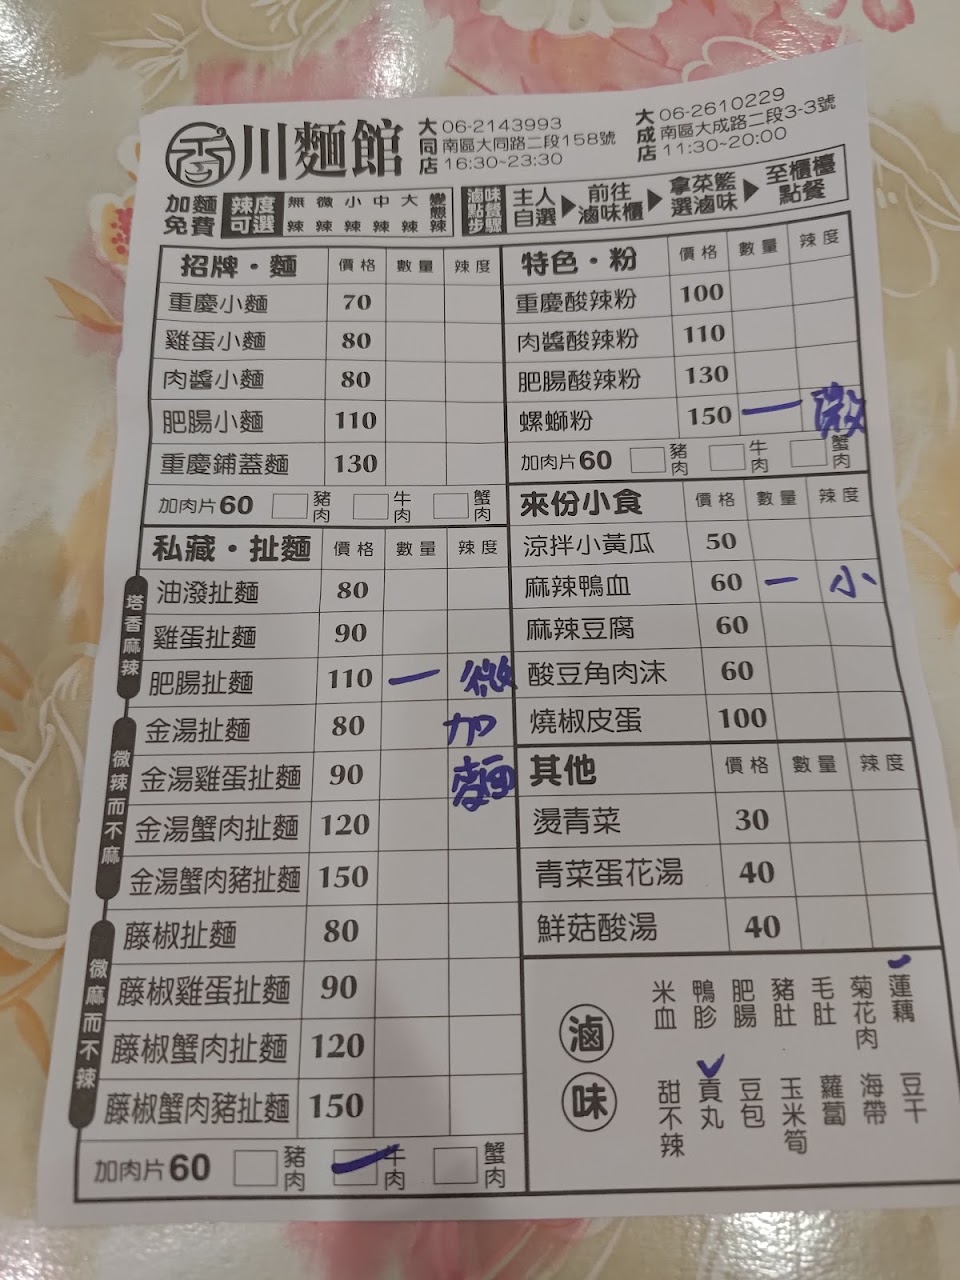 香川麵館
大同店 06-2143993
南區大同路二段158號
16:30~23:30
大成店 06-2610229
南區大成路二段3-3號
11:30~20:00
加麵免費 辣度可選 無辣 微辣 小辣 中辣 大辣 變態辣
滷味點餐步驟 主人自選▶前往滷味櫃▶拿菜籃選滷味▶至櫃檯點餐
招牌・麵 價格 數量 辣度
重慶小麵 70
雞蛋小麵 80
肉醬小麵 80
肥腸小麵 110
重慶鋪蓋麵 130
加肉片60 豬肉 牛肉 蟹肉
私藏・扯麵 價格 數量 辣度
塔香麻辣
油潑扯麵 80
雞蛋扯麵 90
肥腸扯麵 110 一 微
加麵
微辣而不麻
金湯扯麵 80
金湯雞蛋扯麵 90
金湯蟹肉扯麵 120
金湯蟹肉豬扯麵 150
微麻而不辣
藤椒扯麵 80
藤椒雞蛋扯麵 90
藤椒蟹肉扯麵 120
藤椒蟹肉豬扯麵 150
加肉片60 豬肉 牛肉 蟹肉
特色・粉 價格 數量 辣度
重慶酸辣粉 100
肉醬酸辣粉 110
肥腸酸辣粉 130
螺螄粉 150 一 微
加肉片60 豬肉 牛肉 蟹肉
來份小食 價格 數量 辣度
涼拌小黃瓜 50
麻辣鴨血 60 一 小
麻辣豆腐 60
酸豆角肉沫 60
燒椒皮蛋 100
其他 價格 數量 辣度
燙青菜 30
青菜蛋花湯 40
鮮菇酸湯 40
滷味
米血 鴨胗 肥腸 豬肚 毛肚 菊花肉 蓮藕
甜不辣 貢丸 豆包 玉米筍 蘿蔔 海帶 豆干